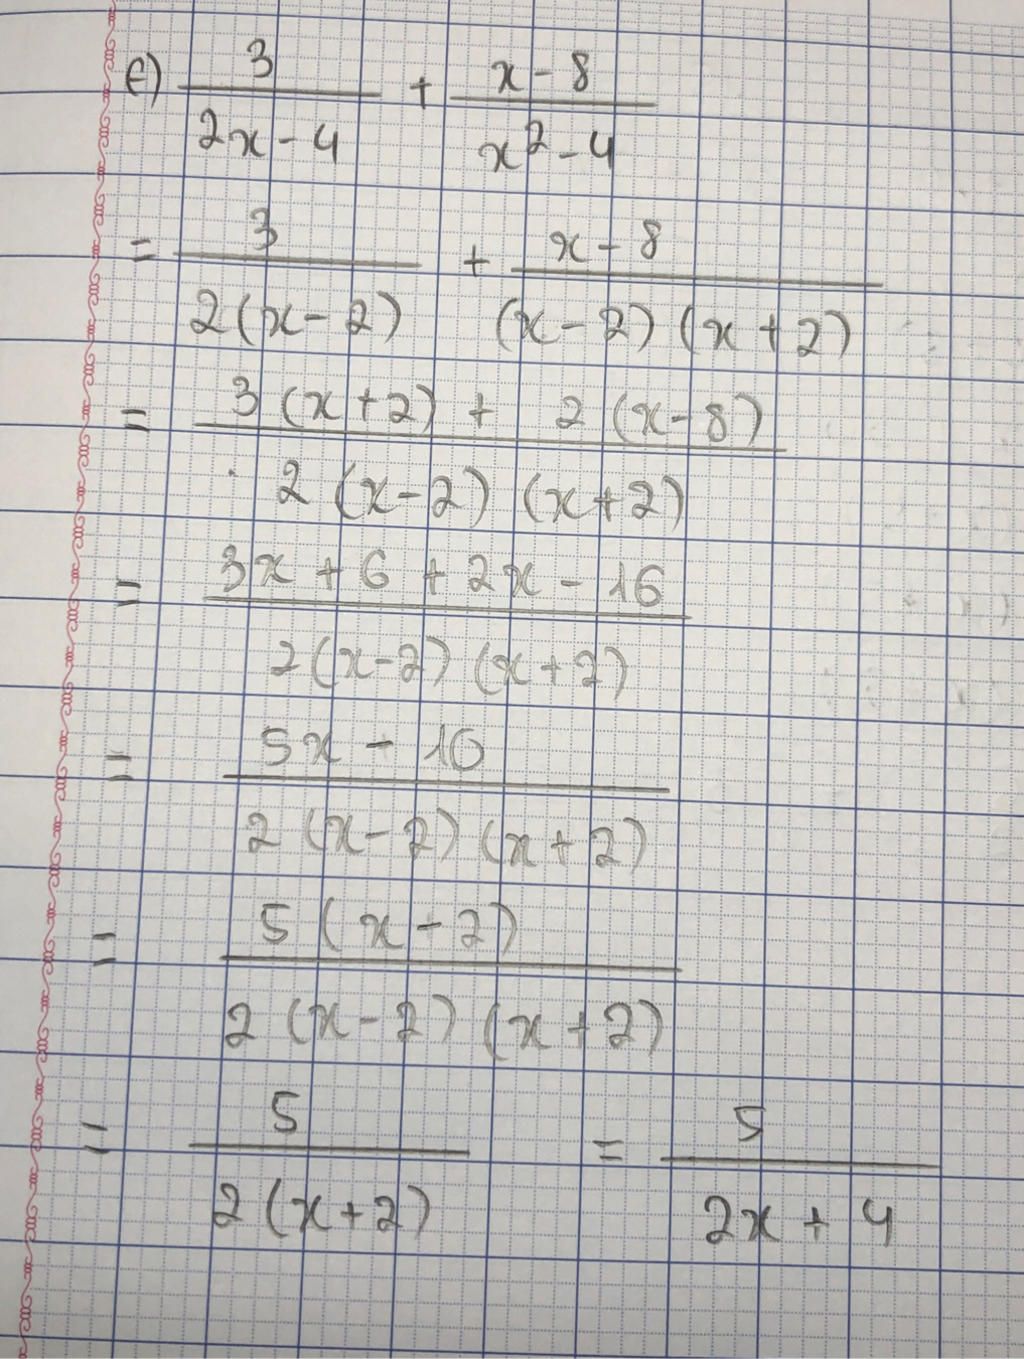 e) 3/(2x - 4) + (x - 8)/(x² - 4)
= 3/(2(x - 2)) + (x - 8)/((x - 2)(x + 2))
= (3(x + 2) + 2(x - 8))/(2(x - 2)(x + 2))
= (3x + 6 + 2x - 16)/(2(x - 2)(x + 2))
= (5x - 10)/(2(x - 2)(x + 2))
= (5(x - 2))/(2(x - 2)(x + 2))
= 5/(2(x + 2)) = 5/(2x + 4)